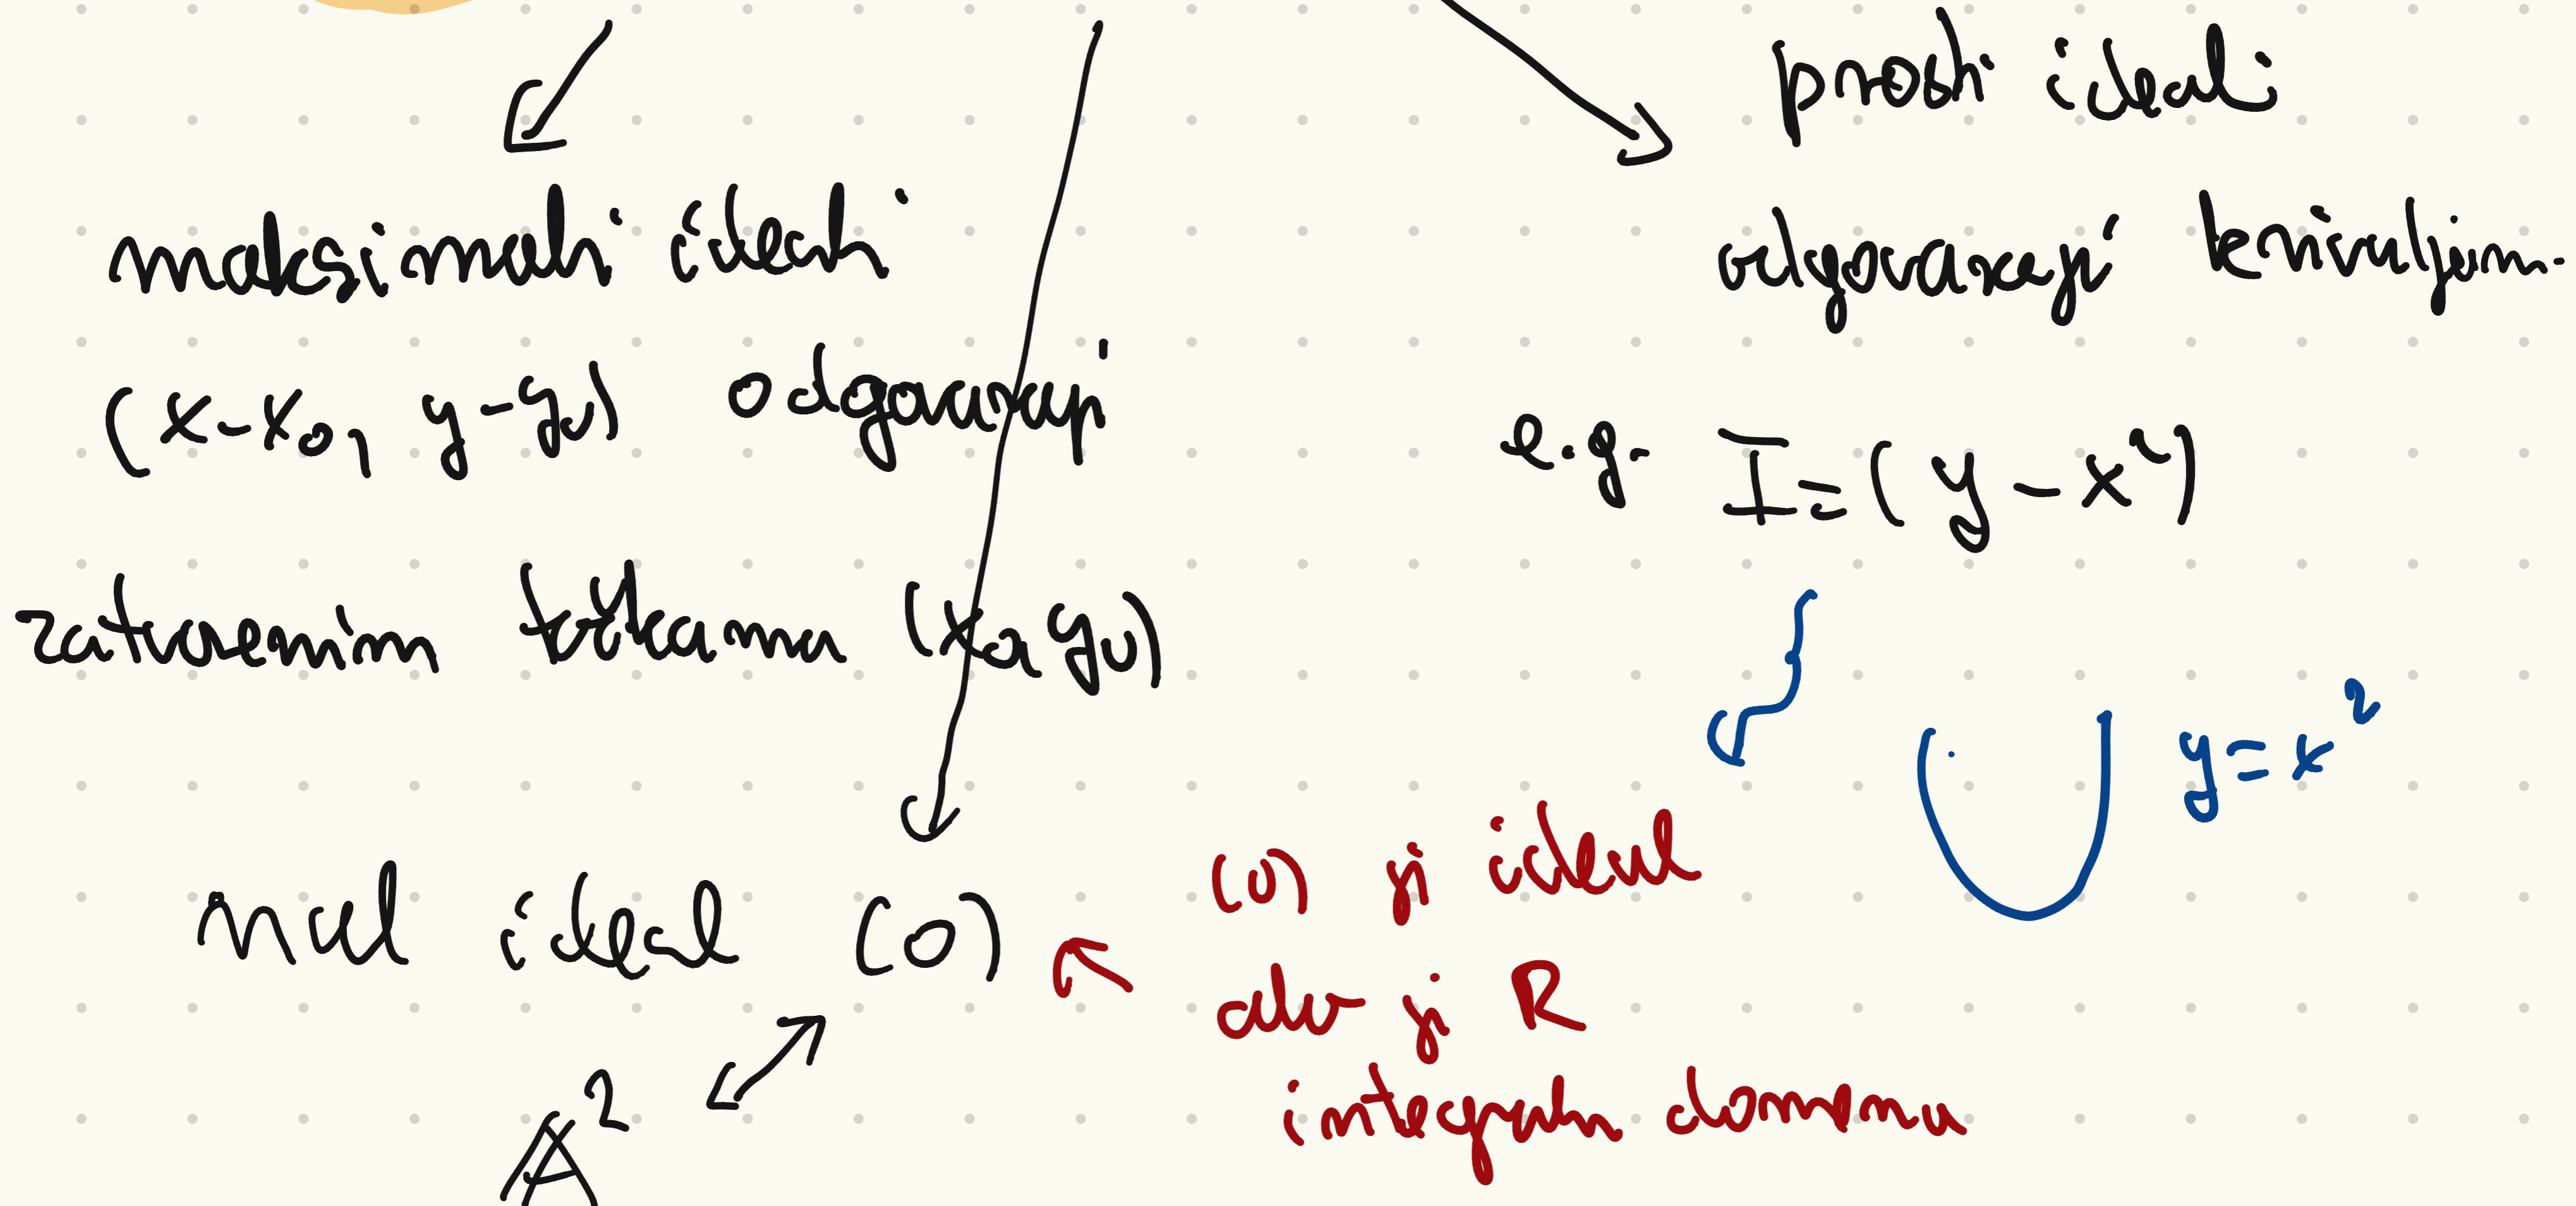 maksimalni ideali
(x-x₀, y-y₀) odgovaraju
zatvorenim točkama (x₀, y₀)
nul ideal (0)
A²
prosti ideali
odgovaraju krivuljama
e.g. I=(y-x²)
y=x²
(0) je ideal
ako je R
integralna domena